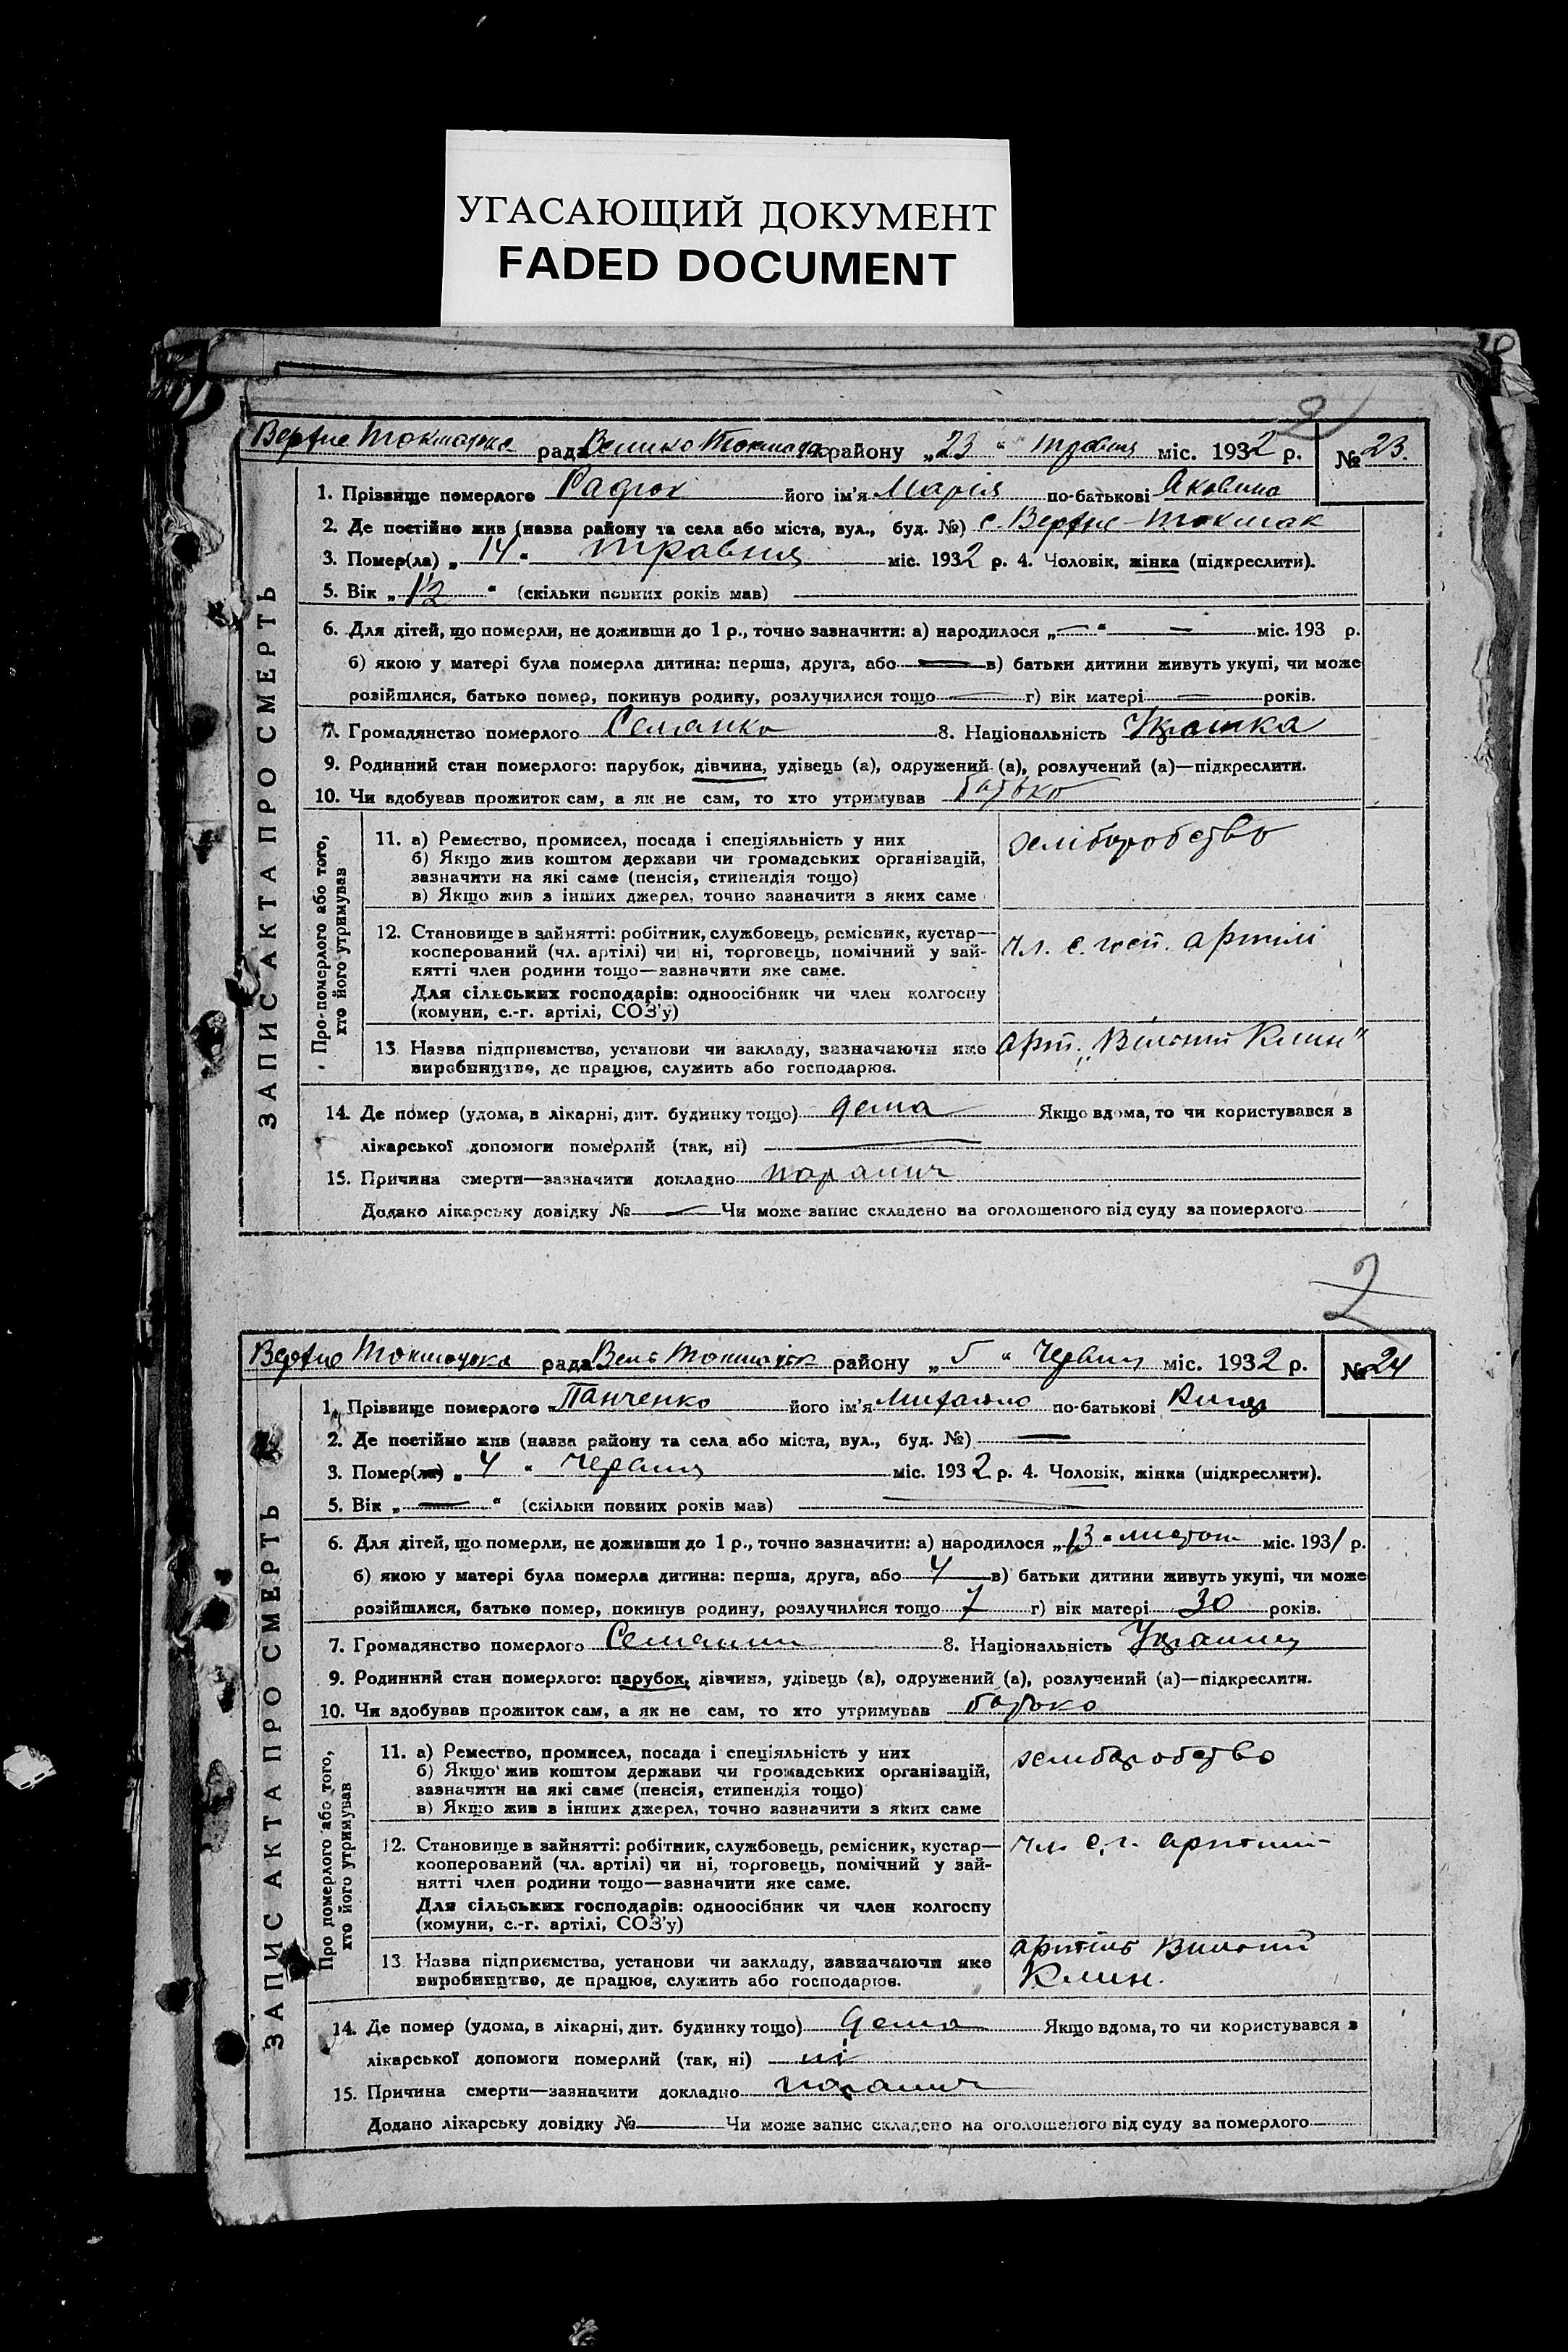 УГАСАЮЩИЙ ДОКУМЕНТ
FADED DOCUMENT
2
Верхне Токмацка рада Велико Токмацьк району „23 “ травня міс. 1932 р. № 23.
ЗАПИС АКТА ПРО СМЕРТЬ
1. Прізвище померлого його ім'я Марія по-батькові Яковина
2. Де постійно жив (назва району та села або міста, вул., буд. №) с. Верхне-Токмак
3. Помер(ла) „ 14 “ травня міс. 1932 р. 4. Чоловік, жінка (підкреслити).
5. Вік „ “ (скільки повних років мав)
6. Для дітей, що померли, не доживши до 1 р., точно зазначити: а) народилося „ — “ — міс. 193 р.
б) якою у матері була померла дитина: перша, друга, або — в) батьки дитини живуть укупі, чи може
розійшлися, батько помер, покинув родину, розлучилися тощо — г) вік матері — років.
7. Громадянство померлого Селянка 8. Національність Українка
9. Родинний стан померлого: парубок, дівчина, удівець (а), одружений (а), розлучений (а)—підкреслити.
10. Чи здобував прожиток сам, а як не сам, то хто утримував батько
Про померлого або того,
хто його утримував
11. а) Ремество, промисел, посада і спеціяльність у них хліборобство
б) Якщо жив коштом держави чи громадських організацій,
зазначити на які саме (пенсія, стипендія тощо)
в) Якщо жив з інших джерел, точно зазначити з яких саме
12. Становище в зайнятті: робітник, службовець, ремісник, кустар—
косперований (чл. артілі) чи ні, торговець, помічний у зай- чл. с. госп. артілі
нятті член родини тощо—зазначити яке саме.
Для сільських господарів: одноосібник чи член колгоспу
(комуни, с.-г. артілі, СОЗ'у)
13. Назва підприємства, установи чи закладу, зазначаючи яке арт. „Вільний Клин“
виробництво, де працює, служить або господарює.
14. Де помер (удома, в лікарні, дит. будинку тощо) дома Якщо вдома, то чи користувався з
лікарської допомоги померлий (так, ні) —
15. Причина смерти—зазначити докладно
Додано лікарську довідку № — Чи може запис складено на оголошеного від суду за померлого
2
Верхне Токмацка рада Вель Токмацьк району „ 5 “ Червня міс. 1932 р. № 24
ЗАПИС АКТА ПРО СМЕРТЬ
1. Прізвище померлого Панченко його ім'я Михайло по-батькові
2. Де постійно жив (назва району та села або міста, вул., буд. №) —
3. Помер(ла) „ 4 “ Червня міс. 1932 р. 4. Чоловік, жінка (підкреслити).
5. Вік „ — “ (скільки повних років мав) —
6. Для дітей, що померли, не доживши до 1 р., точно зазначити: а) народилося „ 13 “ листоп міс. 1931 р.
б) якою у матері була померла дитина: перша, друга, або 4 в) батьки дитини живуть укупі, чи може
розійшлися, батько помер, покинув родину, розлучилися тощо г) вік матері 30 років.
7. Громадянство померлого Селянин 8. Національність Українец
9. Родинний стан померлого: парубок, дівчина, удівець (а), одружений (а), розлучений (а)—підкреслити.
10. Чи здобував прожиток сам, а як не сам, то хто утримував батько
Про померлого або того,
хто його утримував
11. а) Ремество, промисел, посада і спеціяльність у них хліборобство
б) Якщо жив коштом держави чи громадських організацій,
зазначити на які саме (пенсія, стипендія тощо)
в) Якщо жив з інших джерел, точно зазначити з яких саме
12. Становище в зайнятті: робітник, службовець, ремісник, кустар— чл. с.г. артілі
кооперований (чл. артілі) чи ні, торговець, помічний у зай-
нятті член родини тощо—зазначити яке саме.
Для сільських господарів: одноосібник чи член колгоспу
(комуни, с.-г. артілі, СОЗ'у)
13. Назва підприємства, установи чи закладу, зазначаючи яке артіль Вільний
виробництво, де працює, служить або господарює. Клин.
14. Де помер (удома, в лікарні, дит. будинку тощо) дома Якщо вдома, то чи користувався з
лікарської допомоги померлий (так, ні) ні
15. Причина смерти—зазначити докладно
Додано лікарську довідку № Чи може запис складено на оголошеного від суду за померлого